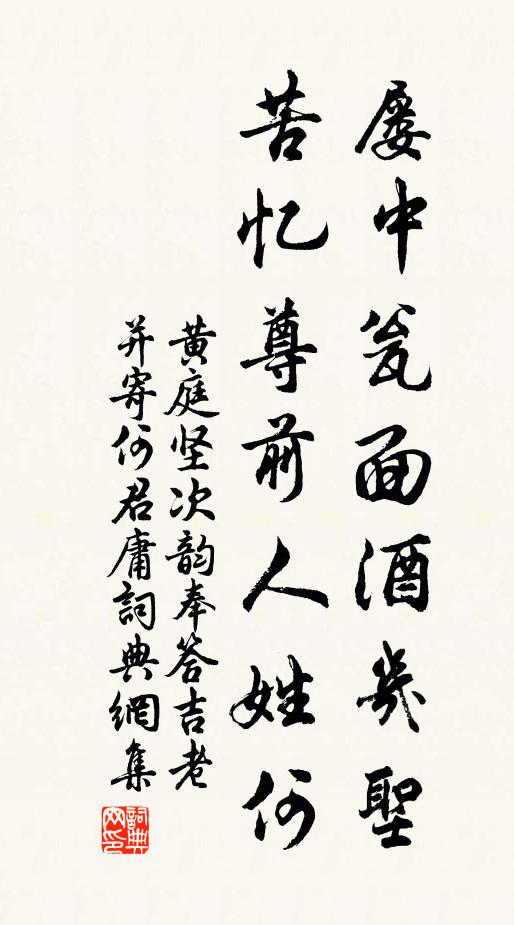 屡中瓮面酒几聖
苦忆尊前人姓何
黄庭坚次韵奉答吉老
并寄何君庸詞典網集
詞典
网印